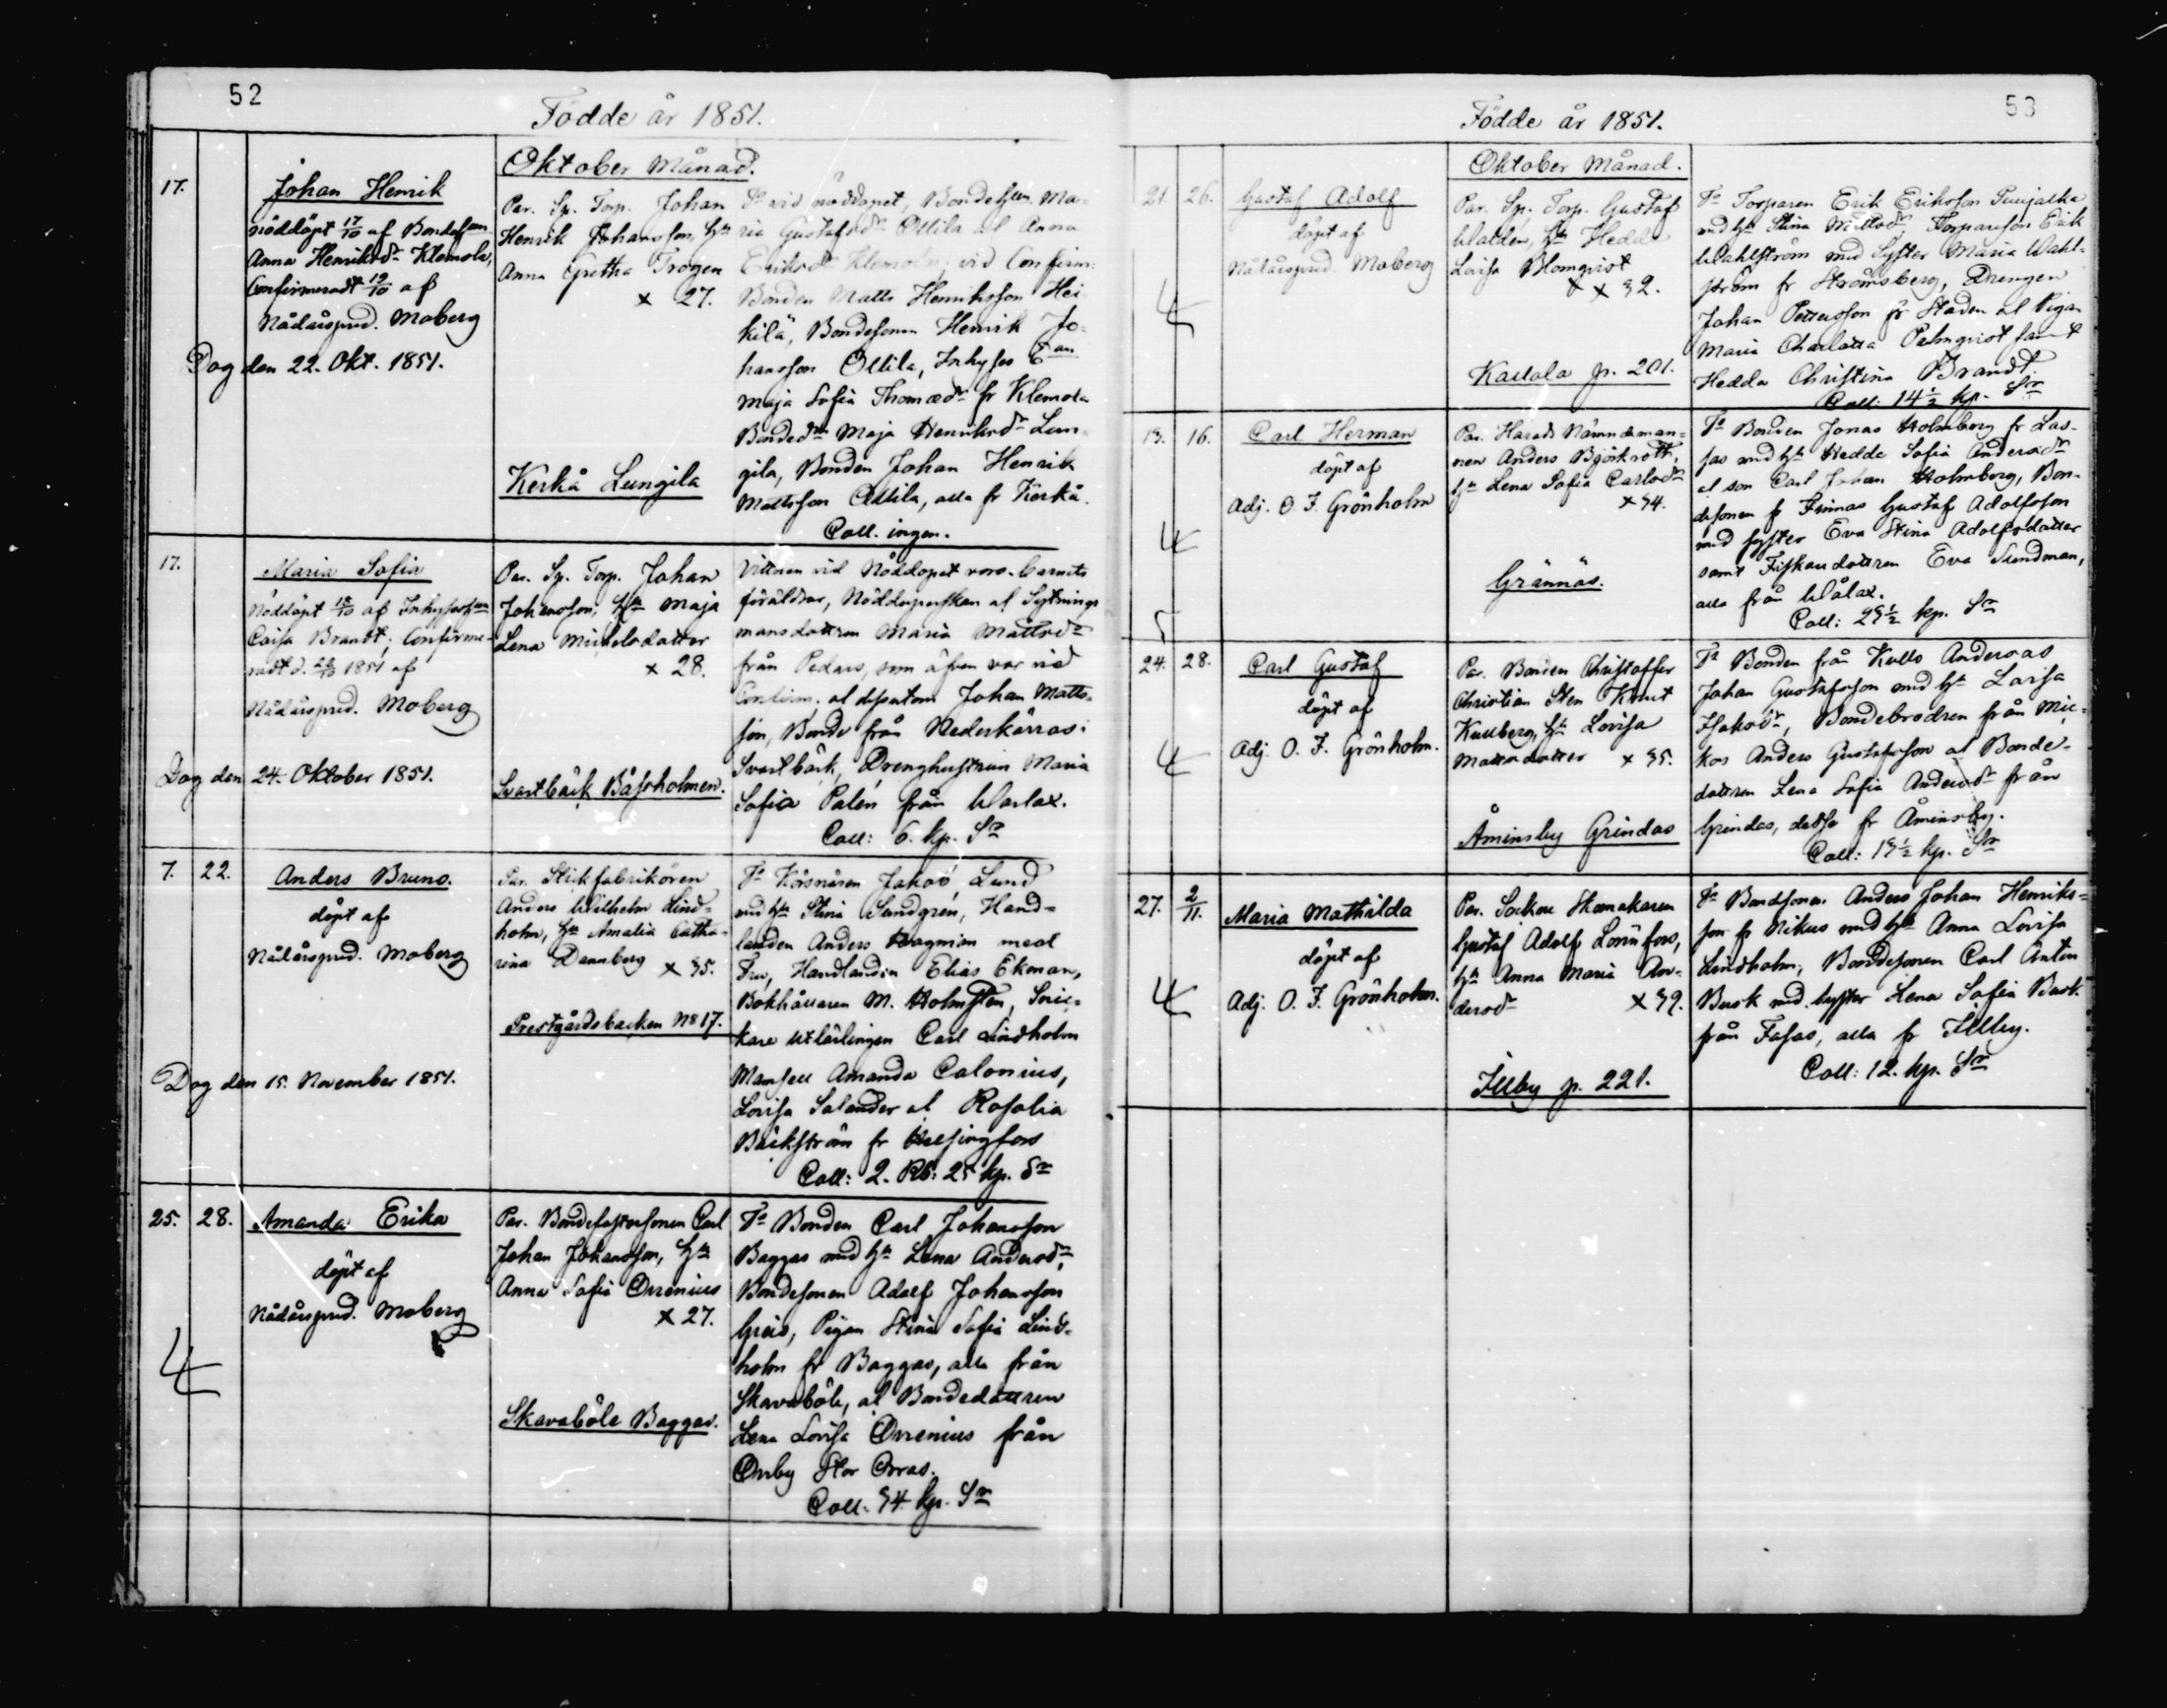 52
Födde år 1851.
Oktober Månad.
17.
Johan Henrik
nöddöpt 17/10 af Bondehun
Anna Henriksdr Klemola,
Confirmeradt 19/10 af
Nådårspred. Moberg
Dog den 22. Okt. 1851.
Par. Sp. Torp. Johan
Henrik Johansson, hu
Anna Gretha Trogen
x 27.
Kerkå Lungila
Fr vid nöddopet, Bondehun Ma-
ria Gustafsdr Ollila al Anna
Eriksdr Klemola; vid Confirm:
Bonden Matts Henriksson Hei-
kilä, Bondesonen Henrik Jo-
hansson Ollila, Inhyses
Maja Sofia Thomædr fr Klemola
Bondedr Maja Henriksdr Lun-
gila, Bonden Johan Henrik
Mattsson Ollila, alla fr Kerkå.
Coll. ingen.
17.
Maria Sofia
Nöddöpt 18/10 af Inhyseshun
Caisa Brandt; Confirme-
radt d. 1851 af
Nådårspred. Moberg
Dog den 24. Oktober 1851.
Par. Sp. Torp. Johan
Johansson, hu Maja
Lena Michelsdotter
x 28.
Svartbäck Båssholmen.
Vittnen vid Nöddopet voro barnets
föräldrar, Nöddöperskan al Sytnings
mansdottren Maria Mattsdr
från Pedars, som äfven var vid
Confirm. al Johan Matts-
son, Bonde från Nederkärras i
Svartbäck, Drenghustrun Maria
Sofia Palén från Warlax.
Coll: 6. kp. Sr
7. 22.
Anders Bruno.
döpt af
Nådårspred. Moberg
Dog den 15. November 1851.
Par. Stickfabrikören
Anders Wilhelm Lind-
holm, hu Amalia Catha-
rina Dannberg x 35.
Prestgårdsbacken No 17.
Fr Körsnären Jakob Lund
med hu Stina Sundgrén, Hand-
landen Anders Wagnian med
Fru, Handlanden Elias Ekman,
Bokhållaren M. Holmstén, Snic-
kare utlärlingen Carl Lindholm
Mamsell Amanda Calonius,
Lovisa Salander al Rosalia
Bäckström fr Helsingfors
Coll: 2. Rb: 25 kp. Sr
25. 28.
Amanda Erika
döpt af
Nådårspred. Moberg
4
Par. Bondefostersonen Carl
Johan Johansson, hu
Anna Sofia Orrenius
x 27.
Skavaböle Baggas.
Fr Bonden Carl Johansson
Baggas med hu Lena Andersdr,
Bondesonen Adolf Johansson
Greis, Pigan Stina Sofia Lind-
holm fr Baggas, alla från
Skavaböle, al Bondedottren
Lena Lovisa Orrenius från
Orrby Stor Orras.
Coll. 34 kp. Sr
53
Födde år 1851.
Oktober Månad.
21. 26.
Gustaf Adolf
döpt af
Nådårspred. Moberg
4
Par. Sp. Torp. Gustaf
Walden, hu Hedda
Lovisa Blomqvist
x x 32.
Kallola p. 201.
Fr Torparen Erik Eriksson Tuujalka
med hu Stina Mattsdr, Torparesson Erik
Wahlström med Syster Maria Wahl-
ström fr Strömsberg, Drengen
Johan Pettersson fr Staden al Pigan
Maria Charlotta Palmqvist samt
Hedda Christina Brandt.
Coll: 14 1/2 kp. Sr
13. 16.
Carl Herman
döpt af
Adj. O. F. Grönholm
4
5
Par. Harads Nämndeman-
nen Anders Björkrott,
hu Lena Sofia Carlsdr
x 34.
Grännäs.
Fr Bonden Jonas Holmberg fr Las-
sas med hu Hedda Sofia Andersdr
al son Carl Johan Holmberg, Bon-
desonen fr Finnas Gustaf Adolfsson
med syster Eva Stina Adolfsdotter
samt Fiskaredottren Eva Sundman,
alla från Wålax.
Coll: 23 1/2 kp. Sr
24. 28.
Carl Gustaf
döpt af
Adj. O. F. Grönholm.
4
Par. Bonden Christoffer
Christian Sten Knut
Kullberg, hu Lovisa
Mattsdotter x 35.
Åminsby Grindas
Fr Bonden från Kullo Andersas
Johan Gustafsson med hu Lovisa
Isaksdr, Bondebrodren från Mic-
kos Anders Gustafsson al Bonde-
dottren Lena Sofia Andersdr från
Grindas, dessa fr Åminsby.
Coll: 13 1/2 kp. Sr
27. 2/11.
Maria Mathilda
döpt af
Adj. O. F. Grönholm.
4
Par. Socken Skomakaren
Gustaf Adolf Lönnfors,
hu Anna Maria An-
dersdr x 39.
Illby p. 221.
Fr Bondsonen Anders Johan Henriks-
son fr Nikus med hu Anna Lovisa
Lindholm, Bondesonen Carl Anton
Busk med syster Lena Sofia Busk
från Fasas, alla fr Illby.
Coll: 12. kp. Sr